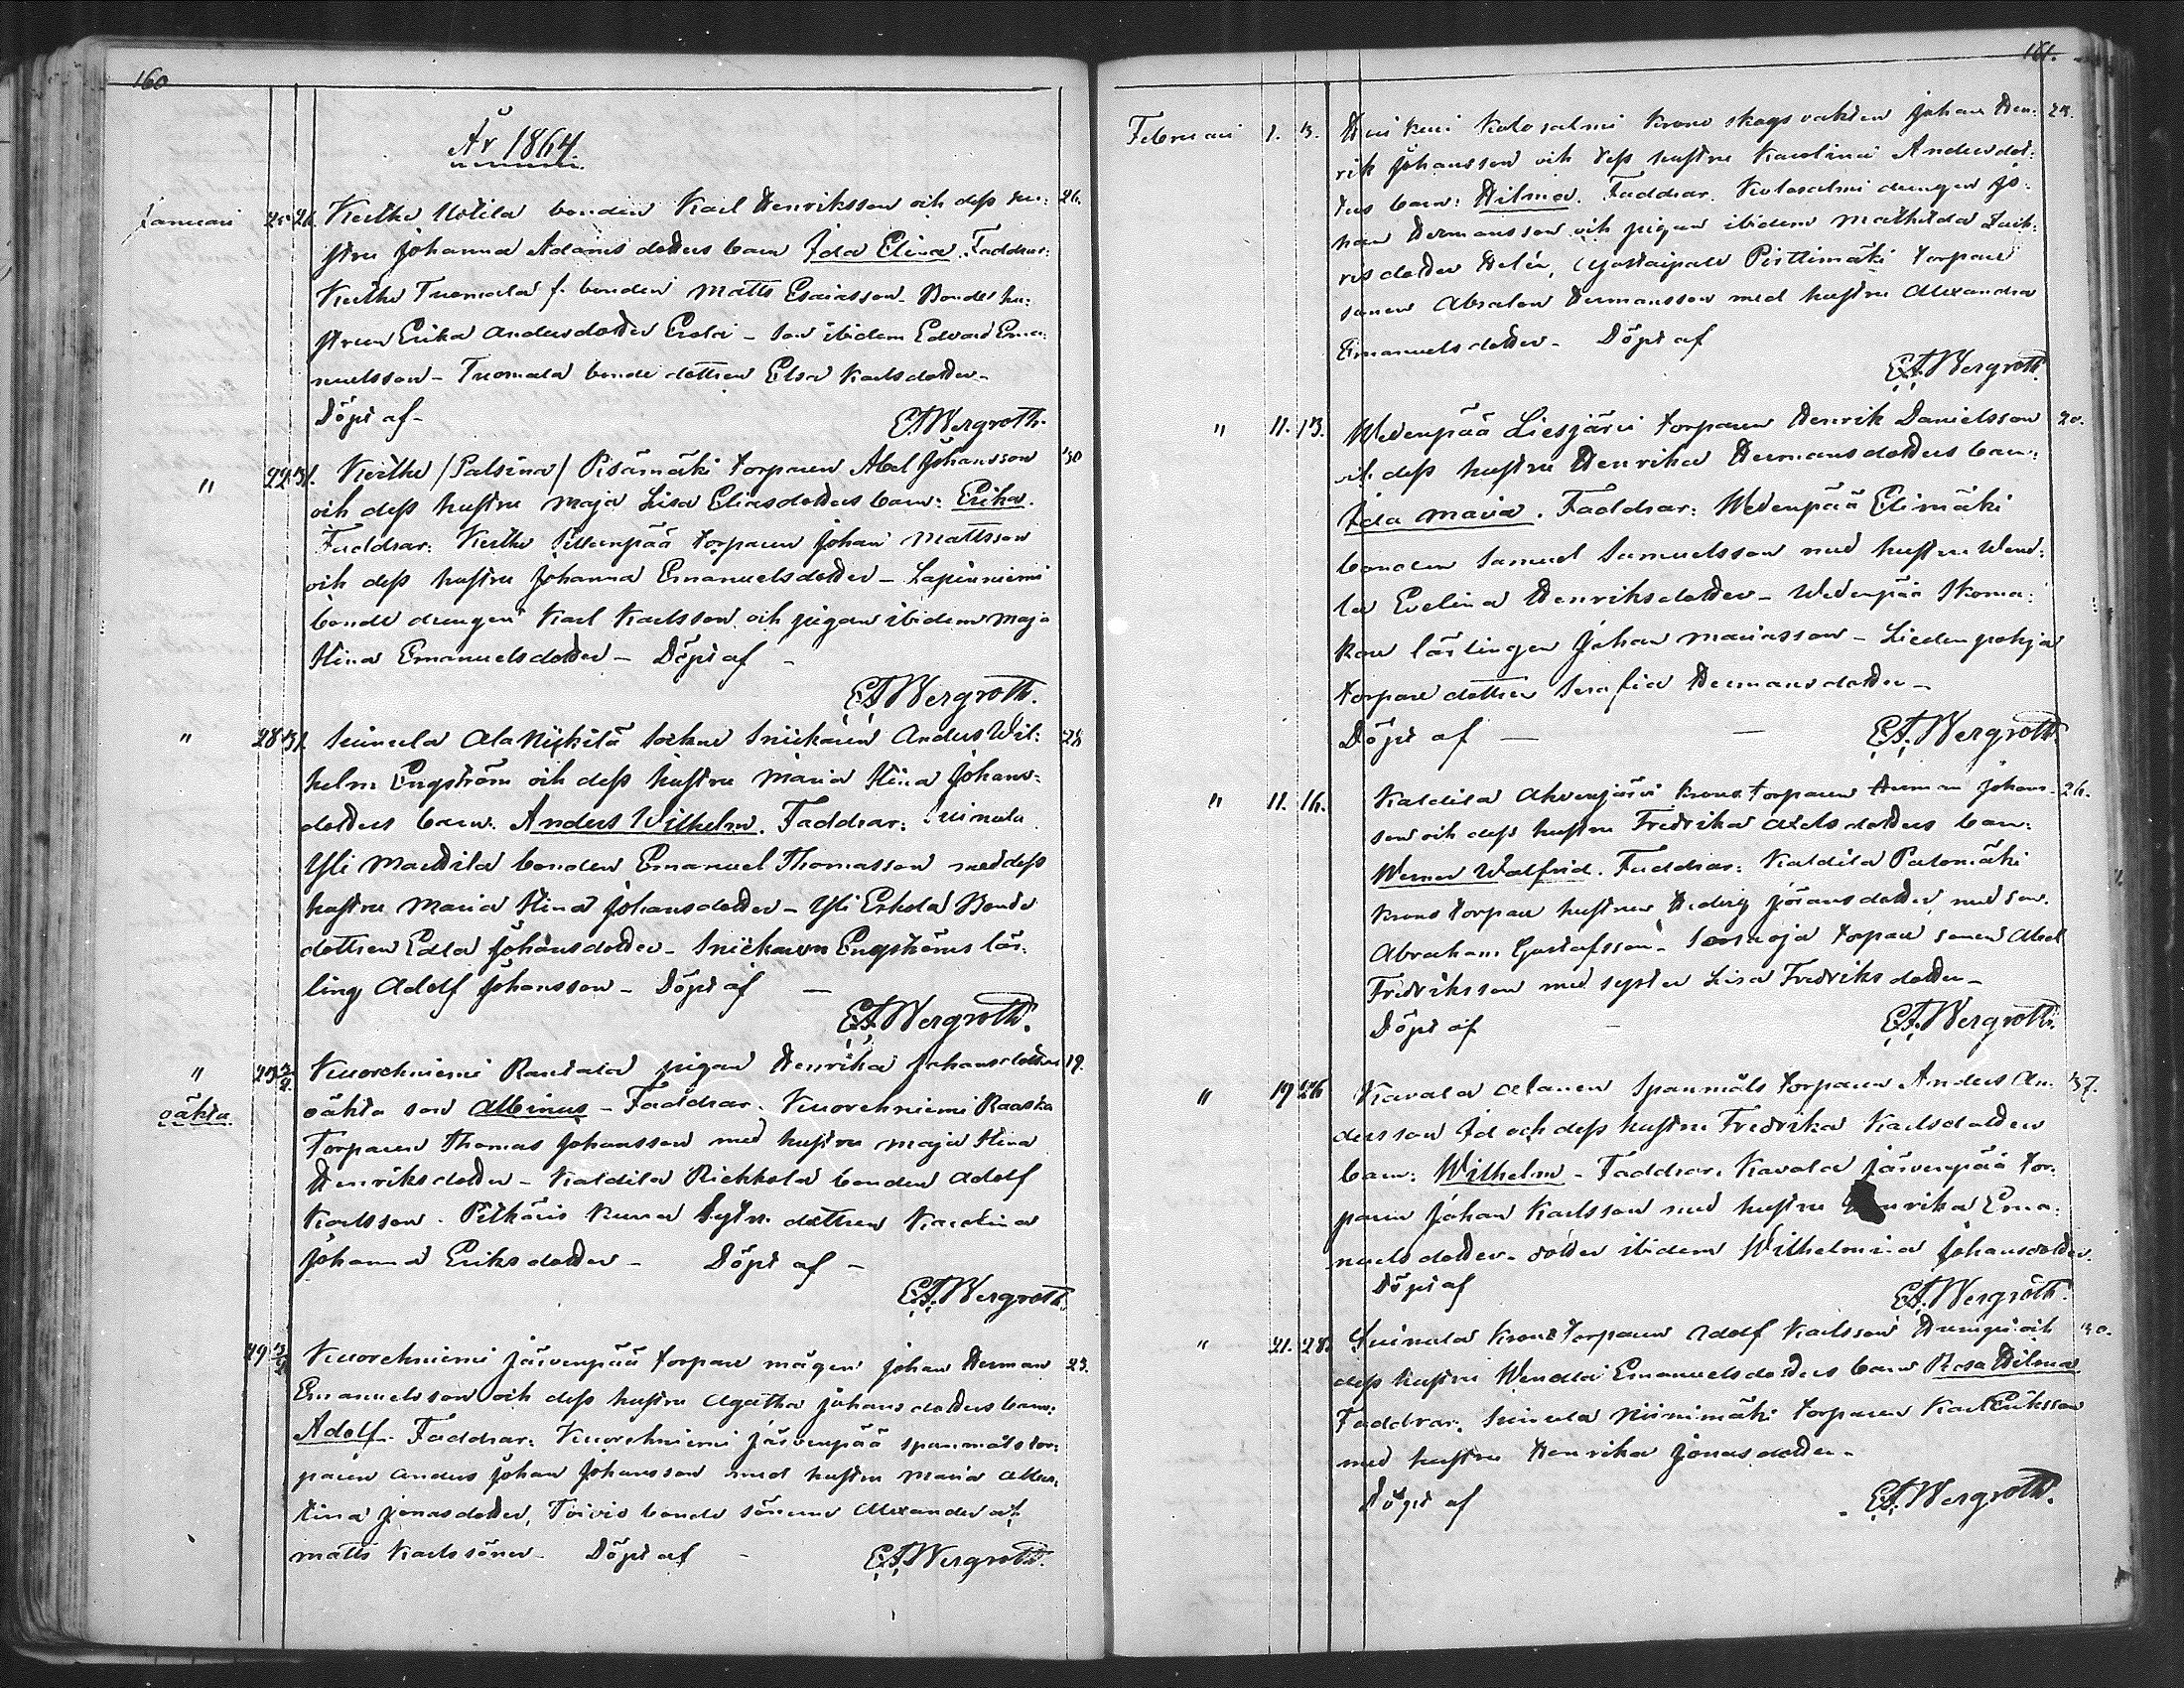 160
År 1864
Januari 25 26. Keitho Uotila bonden Karl Henriksson och dess hu- 26.
stru Johanna Adamsdotters barn Ida Elina. Faddrar:
Keitho Tuomala f. bonden Matts Esaiasson. Bondehu-
strun Erika Andersdotter Erola - son ibidem Edvard Ema-
nuelsson - Tuomala bonde dottren Elsa Karlsdotter -
Döpt af - E.A. Wergroth.
" 31. Keitho /Palsina/ Pisämäki torparen Abel Johansson 30
och dess hustru Maja Lisa Eliasdotters barn: Erika.
Faddrar: Keitho torparen Johan Mattsson
och dess hustru Johanna Emanuelsdotter - Lapinniemi
bonde drengen Karl Karlsson och pigan ibidem Maja
Stina Emanuelsdotter - Döpt af -
E.A. Wergroth.
" 28 31. Suinula Ala Nickilä socken Snickaren Anders Wil- 28
helm Engström och dess hustru Maria Stina Johans-
dotters barn. Anders Wilhelm. Faddrar: Suinula
Yli Marttila bonden Emanuel Thomasson med dess
hustru Maria Stina Johansdotter - Yli Erkola Bonde
dottren Edla Johansdotter - Snickaren Engströms lär-
ling Adolf Johansson - Döpt af -
E.A. Wergroth.
" Kuorehniemi Rantala pigan Henrika Johansdotters 19.
oäkta oäkta son Albinus - Faddrar. Kuorehniemi Raaska
Torparen Thomas Johansson med hustru Maja Stina
Henriksdotter - Kaltila Riekkola bonden Adolf
Karlsson. dottren Karolina
Johanna Eriksdotter - Döpt af -
E.A. Wergroth.
29 3/2 Kuorehniemi Järvenpää torpare mågen Johan Herman 23.
Emanuelsson och dess hustru Agatha Johansdotters barn:
Adolf. Faddrar: Kuorehniemi Järvenpää spanmåls tor-
paren Anders Johan Johansson med hustru Maria Alber-
tina Jonasdotter, Toivio bonde sönerne Alexander och
Matts Karlssöner. Döpt af - E.A. Wergroth.
161.
Februari 1. 3. Kolosalmi Krono skogsvakten Johan Hen-
rik Johansson och dess hustru Karolina Andersdot-
ters barn: Hilma. Faddrar. Kolosalmi drengen Jo-
han Hermansson och pigan ibidem Mathilda
dotter Pirttimäki torpare
sonen Absalon Hermansson med hustru Alexandra
Emanuelsdotter - Döpt af
E.A. Wergroth.
" 11. 13. Wedenpää Liesjärvi torparen Henrik Danielsson 20.
och dess hustru Henrika Hermansdotters barn:
Ida Maria. Faddrar: Wedenpää Elimäki
bonden Samuel Samuelsson med hustru Wend-
la Evelina Henriksdotter - Wedenpää Skoma-
kare lärlingen Johan Mariasson - Liedenpohja
torpare dottren Serafia Hermansdotter -
Döpt af - - E.A. Wergroth.
" 11. 16. Kaltila Ahvenjärvi krono torparen Herman Johans- 26.
son och dess hustru Fredrika Axelsdotters barn:
Werner Walfrid. Faddrar: Kaltila Palomäki
krono torpare hustrun Hedvig Jöransdotter med son.
Abraham Gustafsson - torpare sonen Abel
Fredriksson med syster Lisa Fredriksdotter -
Döpt af - E.A. Wergroth.
" 19 26 Kavala Alanen Spanmåls torparen Anders An- 37.
dersson Id och dess hustru Fredrika Karlsdotters
barn: Wilhelm - Faddrar. Kavala Järvenpää tor-
paren Johan Karlsson med hustru Henrika Ema-
nuelsdotter - dotter ibidem Wilhelmina Johansdotter.
Döpt af E.A. Wergroth.
" 21. 28. Suinula Krono torparen Adolf Karlsson och 30.
dess hustru Wendla Emanuelsdotters barn Rosa Hilma
Faddrar. Suinula Niinimäki torparen Karl Eriksson
med hustru Henrika Jonasdotter -
Döpt af - E.A. Wergroth.